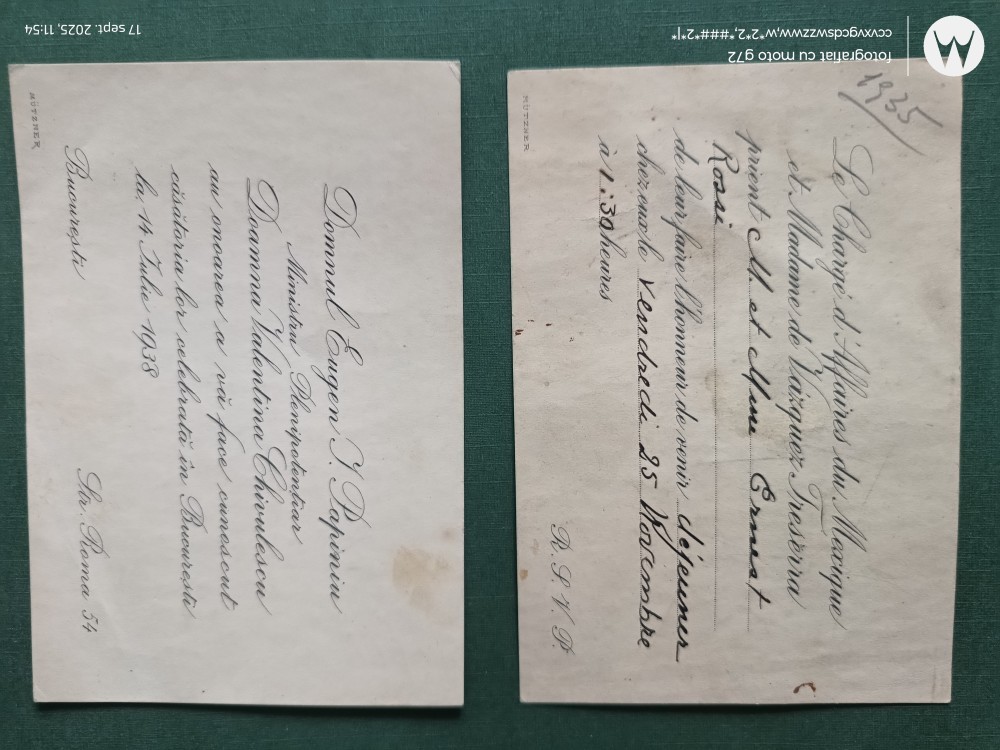 MÜTZNER
Domnul Eugen I. Papiniu
Ministru Plenipotențiar
Doamna Valentina Chivulescu
au onoarea a vă face cunoscut
căsătoria lor celebrată în București
la 14 Iulie 1938
București
Str. Roma 54
MÜTZNER
1935
Le Chargé d'Affaires du Mexique
et Madame de Vázquez Treserra
prient M. et Mme Ernest
Rossi
de leur faire l'honneur de venir déjeuner
chez eux le Vendredi 25 Novembre
à 1:30 heures
R. S. V. P.
fotografiat cu moto g72
ccvxvgcdswzzwzzww,w*2*2,*###*2*|*
17 sept. 2025, 11:54